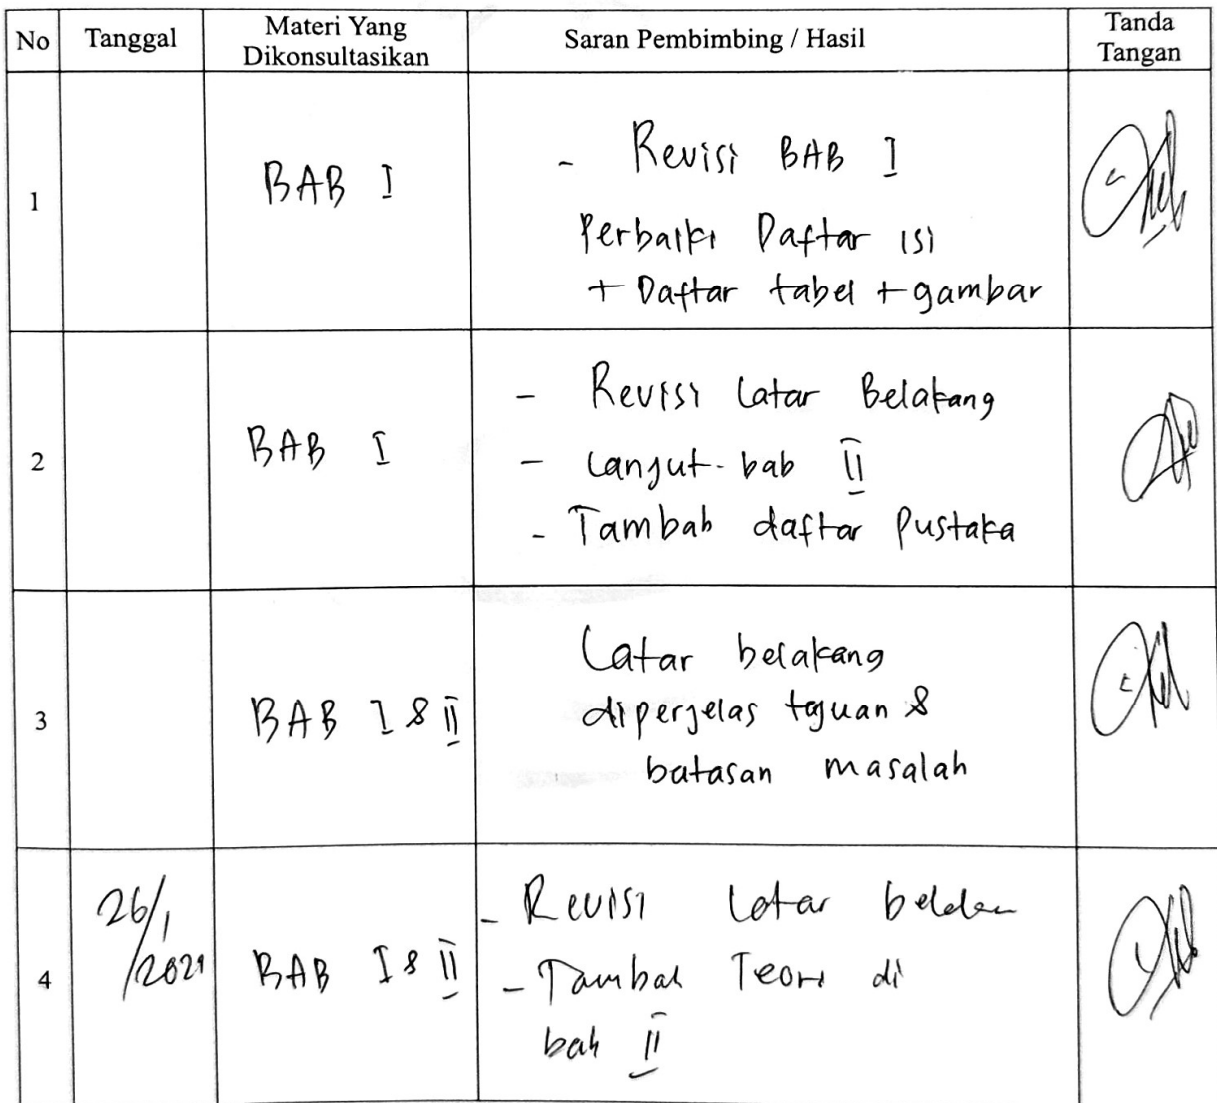 No Tanggal Materi Yang Dikonsultasikan Saran Pembimbing / Hasil Tanda Tangan
1 BAB I - Revisi BAB I
Perbaiki Daftar isi
+ Daftar tabel + gambar
2 BAB I - Revisi Latar Belakang
- Lanjut - bab II
- Tambah daftar Pustaka
3 BAB I & II Latar belakang
diperjelas tujuan &
batasan masalah
4 26/1/2021 BAB I & II - Revisi Latar
- Tambah Teori di
bab II